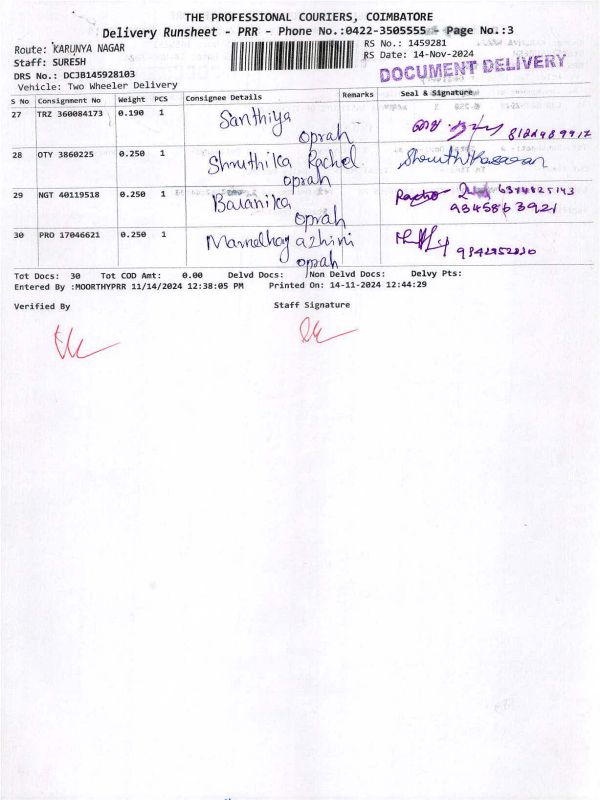 THE PROFESSIONAL COURIERS, COIMBATORE
Delivery Runsheet - PRR - Phone No.:0422-3505555 Page No.:3
Route: KARUNYA NAGAR RS No.: 1459281
Staff: SURESH RS Date: 14-Nov-2024
DOCUMENT DELIVERY
DRS No.: DCJB145928103
Vehicle: Two Wheeler Delivery
S No Consignment No Weight PCS Consignee Details Remarks Seal & Signature
27 TRZ 360084173 0.190 1 Santhiya
oprah
28 OTY 3860225 0.250 1 Shruthika Rachel
oprah
29 NGT 40119518 0.250 1 Baranika 6374825143
oprah 9345863921
30 PRO 17046621 0.250 1
oprah
Tot Docs: 30 Tot COD Amt: 0.00 Delvd Docs: Non Delvd Docs: Delvy Pts:
Entered By :MOORTHYPRR 11/14/2024 12:38:05 PM Printed On: 14-11-2024 12:44:29
Verified By Staff Signature